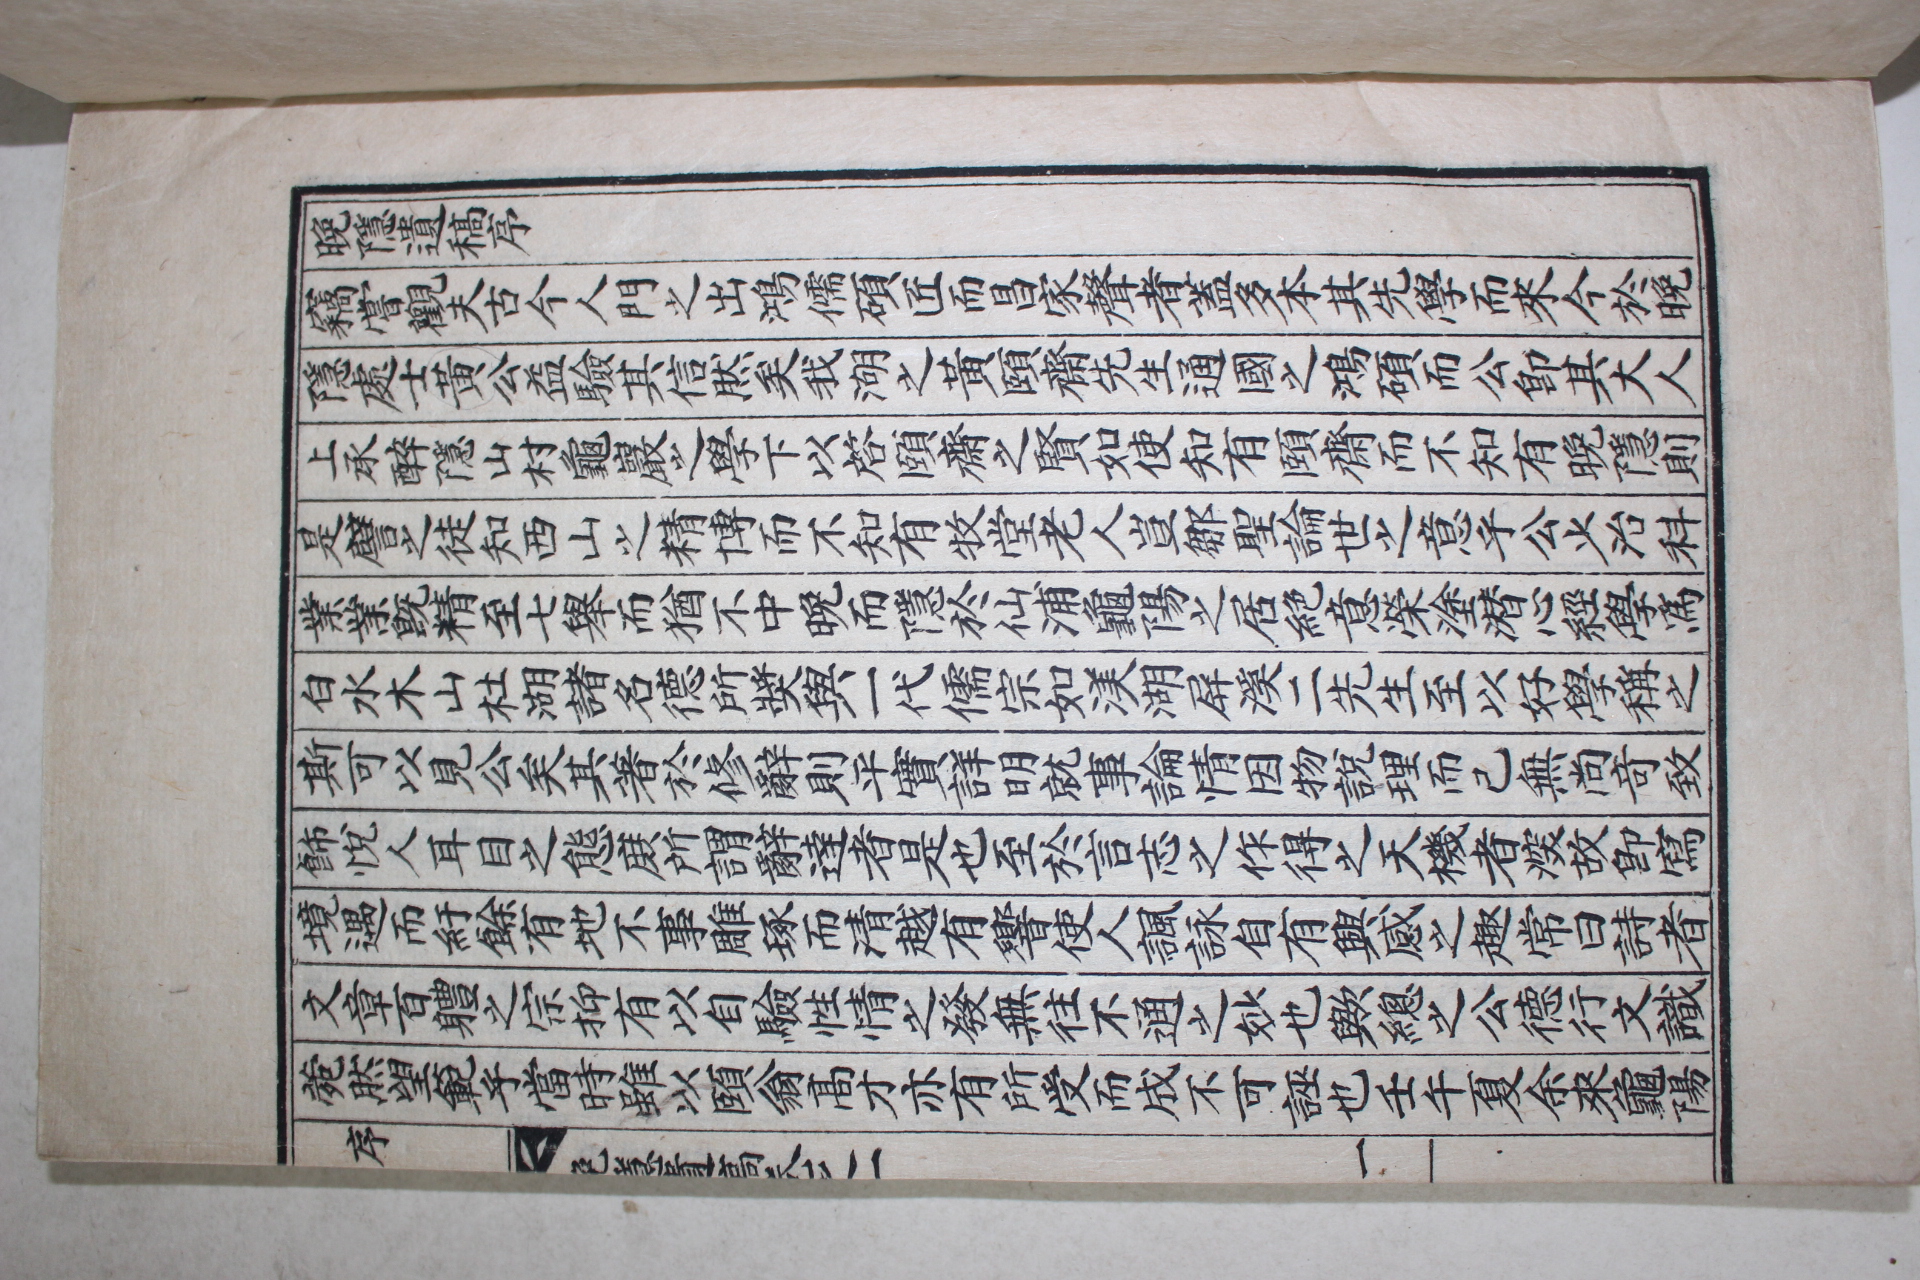 晩隱遺稿序
竊嘗觀夫古今人門之出鴻儒碩匠而昌家聲者蓋多本其先學而來今於晩
隱處士黃公益驗其信然矣我湖之黃頤齋先生通國之鴻碩而公卽其大人
上承醉隱山村龜巖之學下以啓頤齋之賢如使知有頤齋而不知有晩隱則
是譬之徒知西山之精博而不知有牧堂老人豈鄒聖論世之意乎公少治科
業業旣精至七擧而猶不中晩而隱於仙浦龜陽之居絶意榮塗潛心經學爲
白水木山杜湖諸名德所奬與一代儒宗如渼湖屛溪二先生至以好學稱之
斯可以見公矣其著於修辭則平實詳明就事論情因物說理而已無尚奇致
飾悅人耳目之態庶所謂辭達者是也至於言志之作得之天機者深故卽寫
境遇而紆餘有地不事雕琢而淸越有響使人諷詠自有興感之趣常曰詩者
文章百軆之宗抑有以自驗性情之發無往不通之妙也歟總之公德行文識
菀然望範乎當時雖以頤翁髙才亦有所受而成不可誣也壬午夏余來龜陽
序
晩隱遺稿卷之一
一